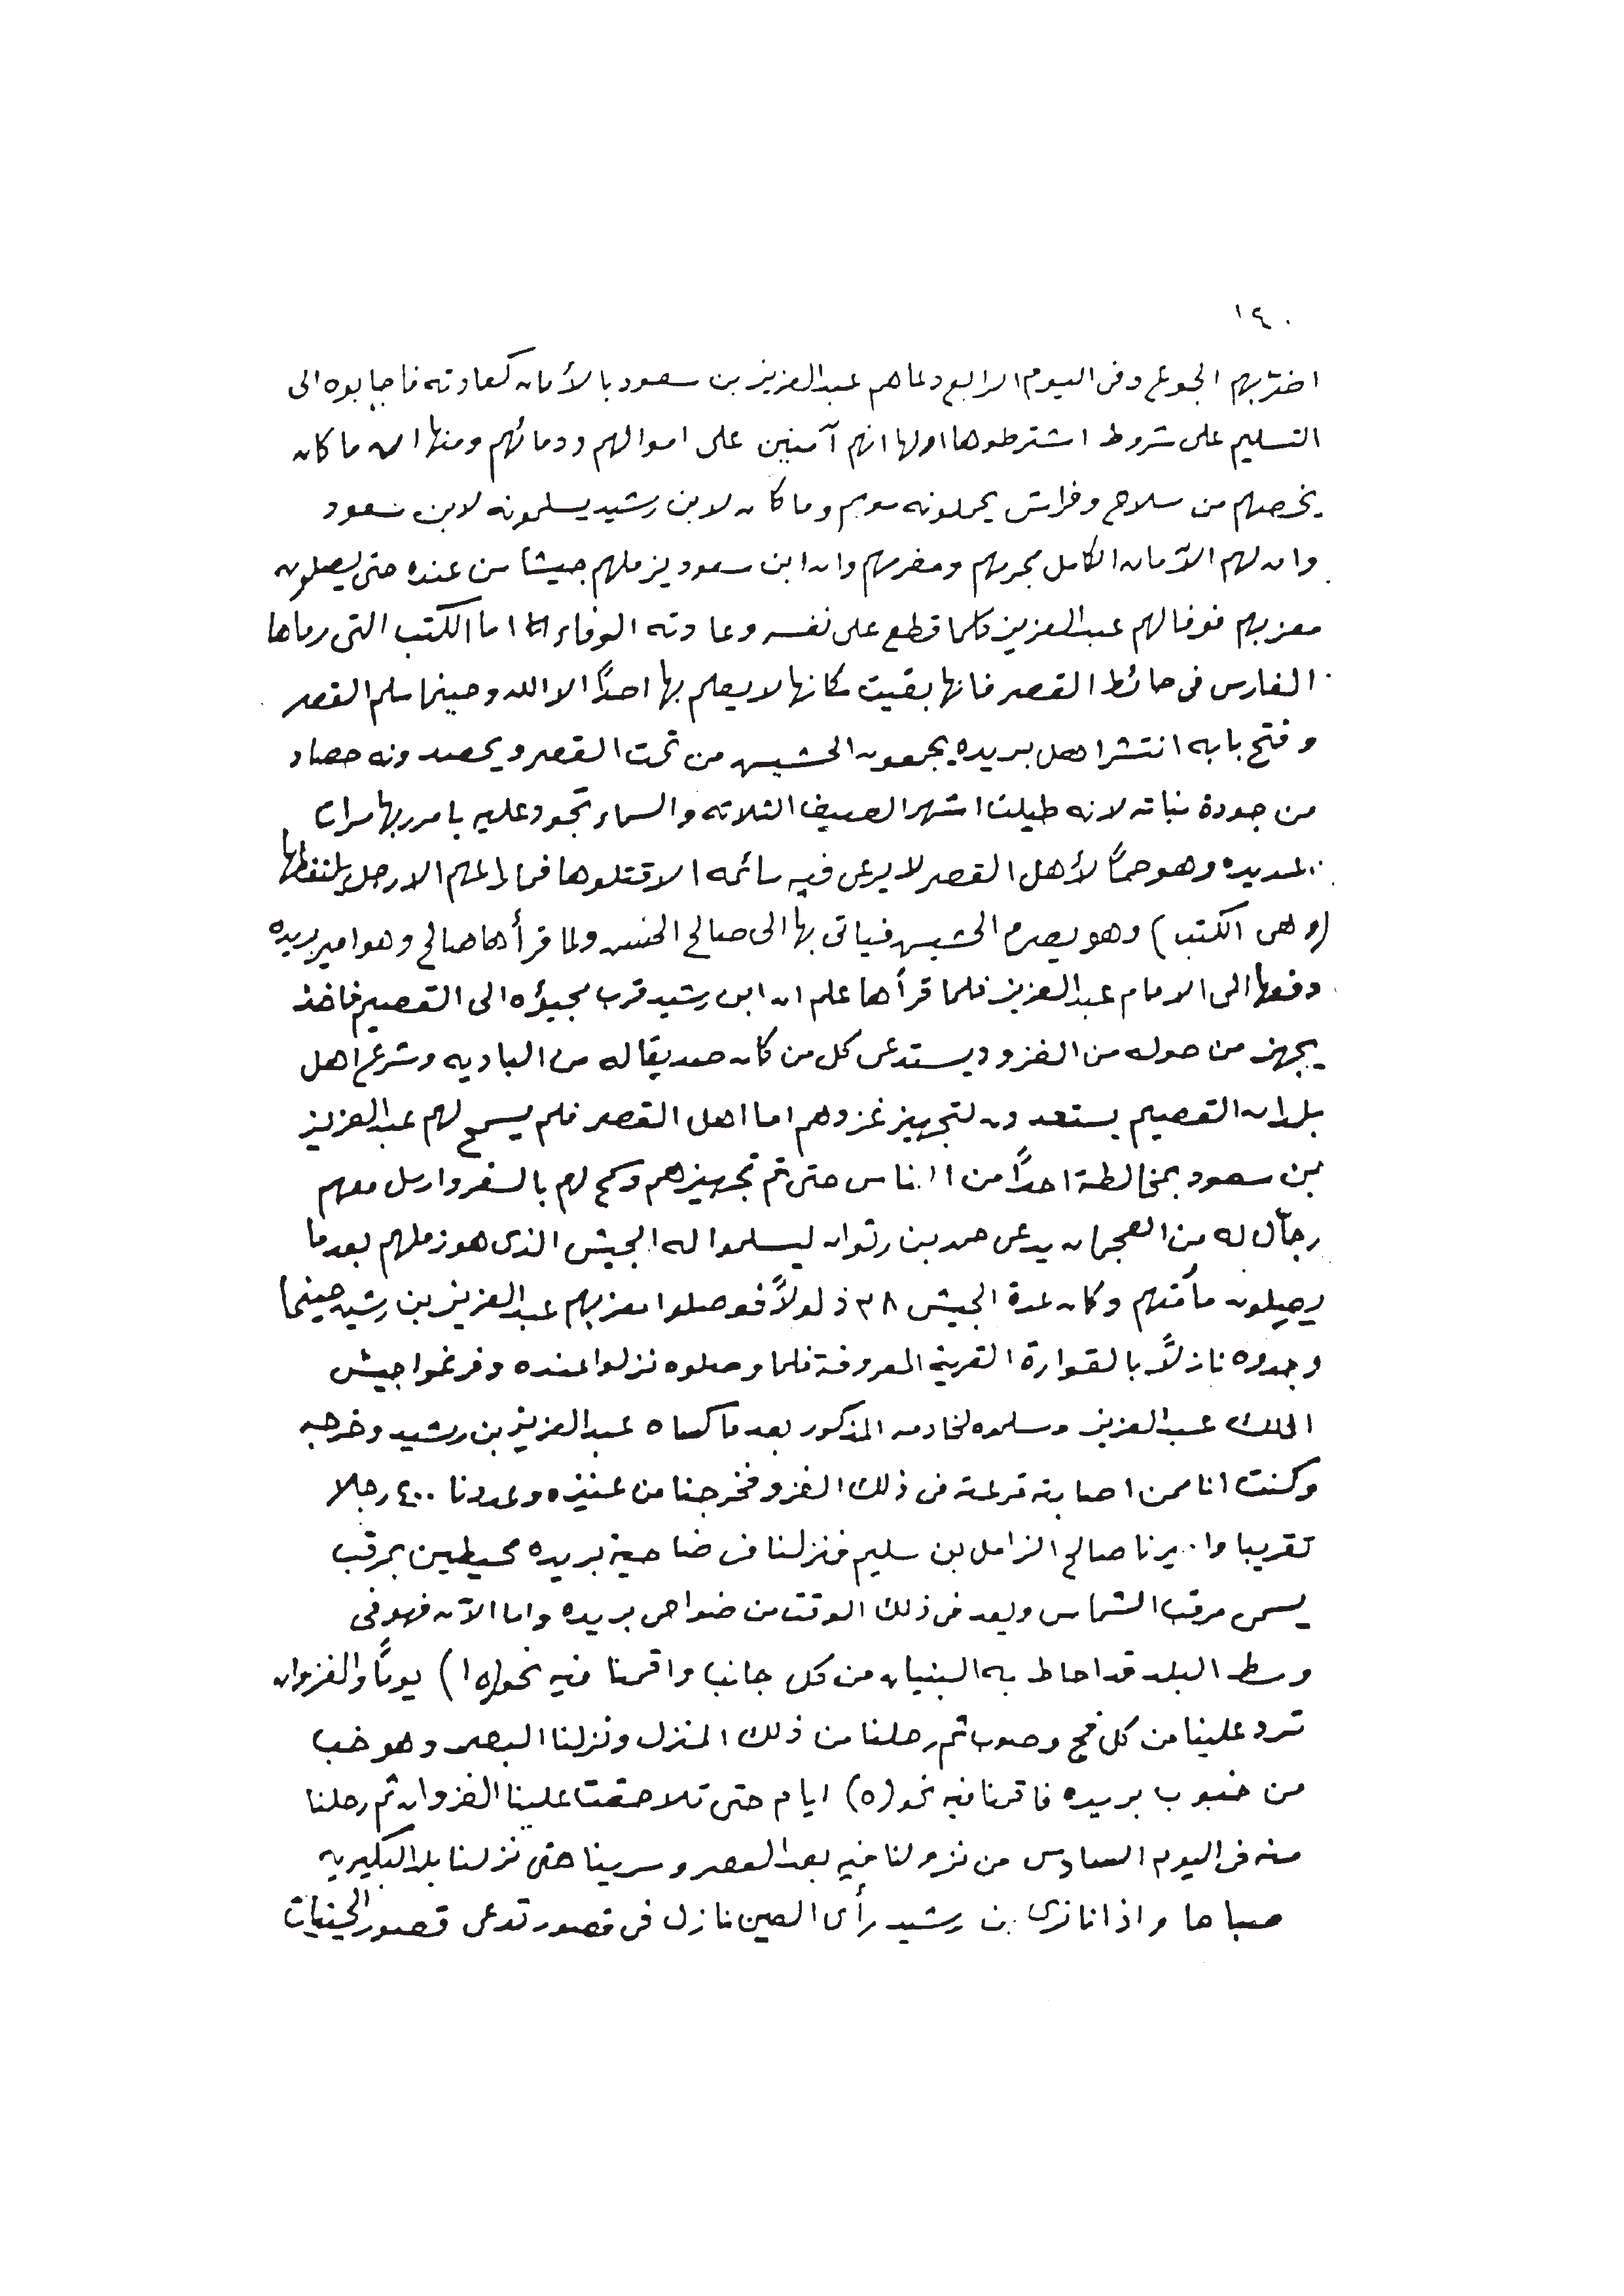 ١٤٠
اضر بهم الجوع وفى اليوم الرابع دعاهم عبدالعزيز بن سعود بالأمان كعادته فاجابوه الى
التسليم على شروط اشترطوها اولها انهم آمنين على اموالهم ودمائهم ومنها ان ما كان
يخصهم من سلاح وفراش يحملونه معهم وما كان لابن رشيد يسلمونه لابن سعود
وان لهم الآمان الكامل مجرمهم ومغرمهم وان ابن سعود يزملهم جيشا من عنده حتى يصلون
معزبهم فوفا لهم عبدالعزيز كلما قطع على نفسه وعادته الوفاء اما الكتب التى رماها
الفارس فى حائط القصر فانها بقيت مكانها لا يعلم بها احدًا الا الله وحينما سلم القصر
وفتح بابه انتشرا هل بريده يجمعون الحشيش من تحت القصر ويحصدونه حصاد
من جودة نباته لانه طيلت اشهر الصيف الثلاثه والسماء تجود عليه بامر ربها مرات
عديده وهو حمًا لأهل القصر لا يرعى فيه سائمه الا قتلوها فما راعهم الا رجل يلتقطها
(وهى الكتب) وهو يصرم الحشيش فياتى بها الى صالح الحسن ولما قرأها صالح وهو امير بريده
دفعها الى الامام عبدالعزيز فلما قرأها علم ان ابن رشيد قرب مجيؤه الى القصيم فاخذ
يجهز من حوله من الغزو ويستدعى كل من كان صديقا له من الباديه وشرع اهل
بلدان القصيم يستعدون لتجهيز غزوهم اما اهل القصر فلم يسمح لهم عبدالعزيز
بن سعود بمخالطة احدًا من الناس حتى تم تجهيزهم وسمح لهم بالسفر وارسل معهم
رجآل له من العجمان يدعى حمد بن رتوان ليسلموا له الجيش الذى هو زملهم بعد ما
يصلون مأمنهم وكان عدة الجيش ٣٨ ذلولاً فوصلوا معزبهم عبدالعزيز بن رشيد حينما
وجدوه نازلاً بالقوارة القرية المعروفة فلما وصلوه نزلوا عنده وفرغوا جيش
الملك عبدالعزيز وسلموه لخادمه المذكور بعد ما كساه عبدالعزيز بن رشيد وخرجه
وكنت انا ممن اصابته قرعته فى ذلك الغزو فخرجنا من عنيزه وعددنا ٤٠٠ رجلا
تقريبا واميرنا صالح الزامل بن سليم فنزلنا فى ضاحية بريده محيطين بمرقب
يسمى مرقب الشماس ويعد فى ذلك الوقت من ضواحى بريده واما الآن فهو فى
وسط البلد قد احاط به البنيان من كل جانب واقمنا فيه نحو (١٥) يومًا والغزوان
ترد علينا من كل فج وصوب ثم رحلنا من ذلك المنزل ونزلنا البصر وهو خب
من خبوب بريده فاقمنا فيه نحو (٥) ايام حتى تلاحقت علينا الغزوان ثم رحلنا
منه فى اليوم السادس من نزولنا فيه بعد العصر وسرينا حتى نزلنا بلد البكيريه
صباحا واذا نا نرى بن رشيد رأى العين نازل فى قصور تدعى قصور الخبيبات